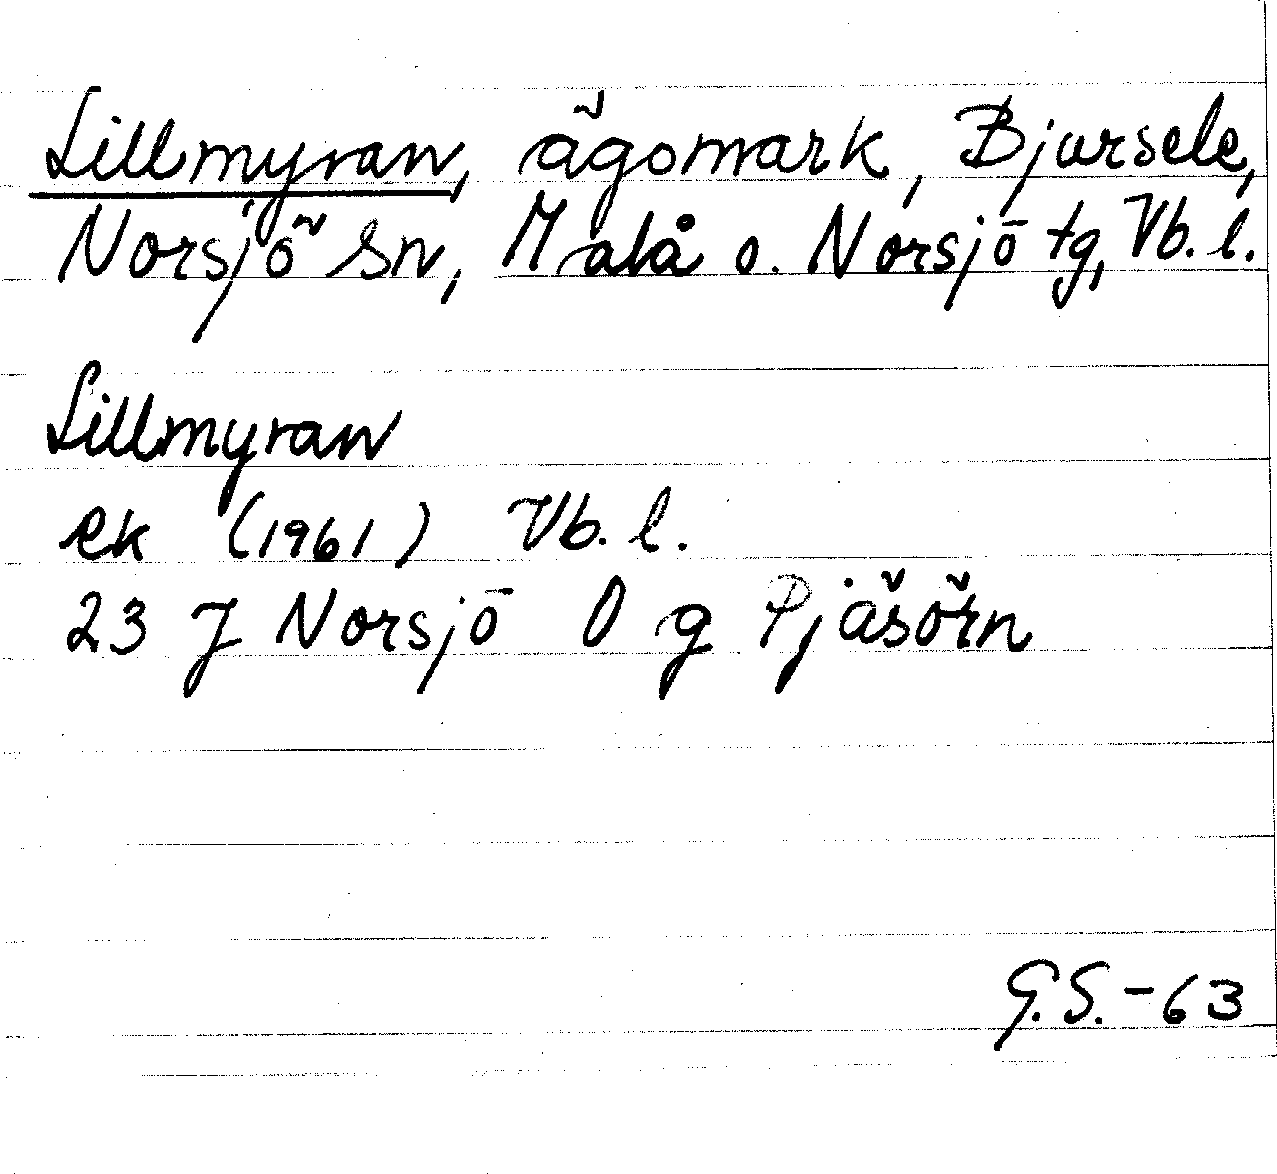 Lillmyran, ägomark, Bjursele,
Norsjö sn, Malå o. Norsjö tg, Vb. l.
Lillmyran
ek (1961) Vb. l.
23 J Norsjö O g Pjäsörn
G.S. - 63